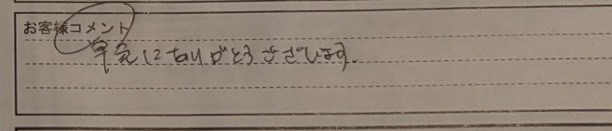 お客様コメント
早急にありがとうございます。